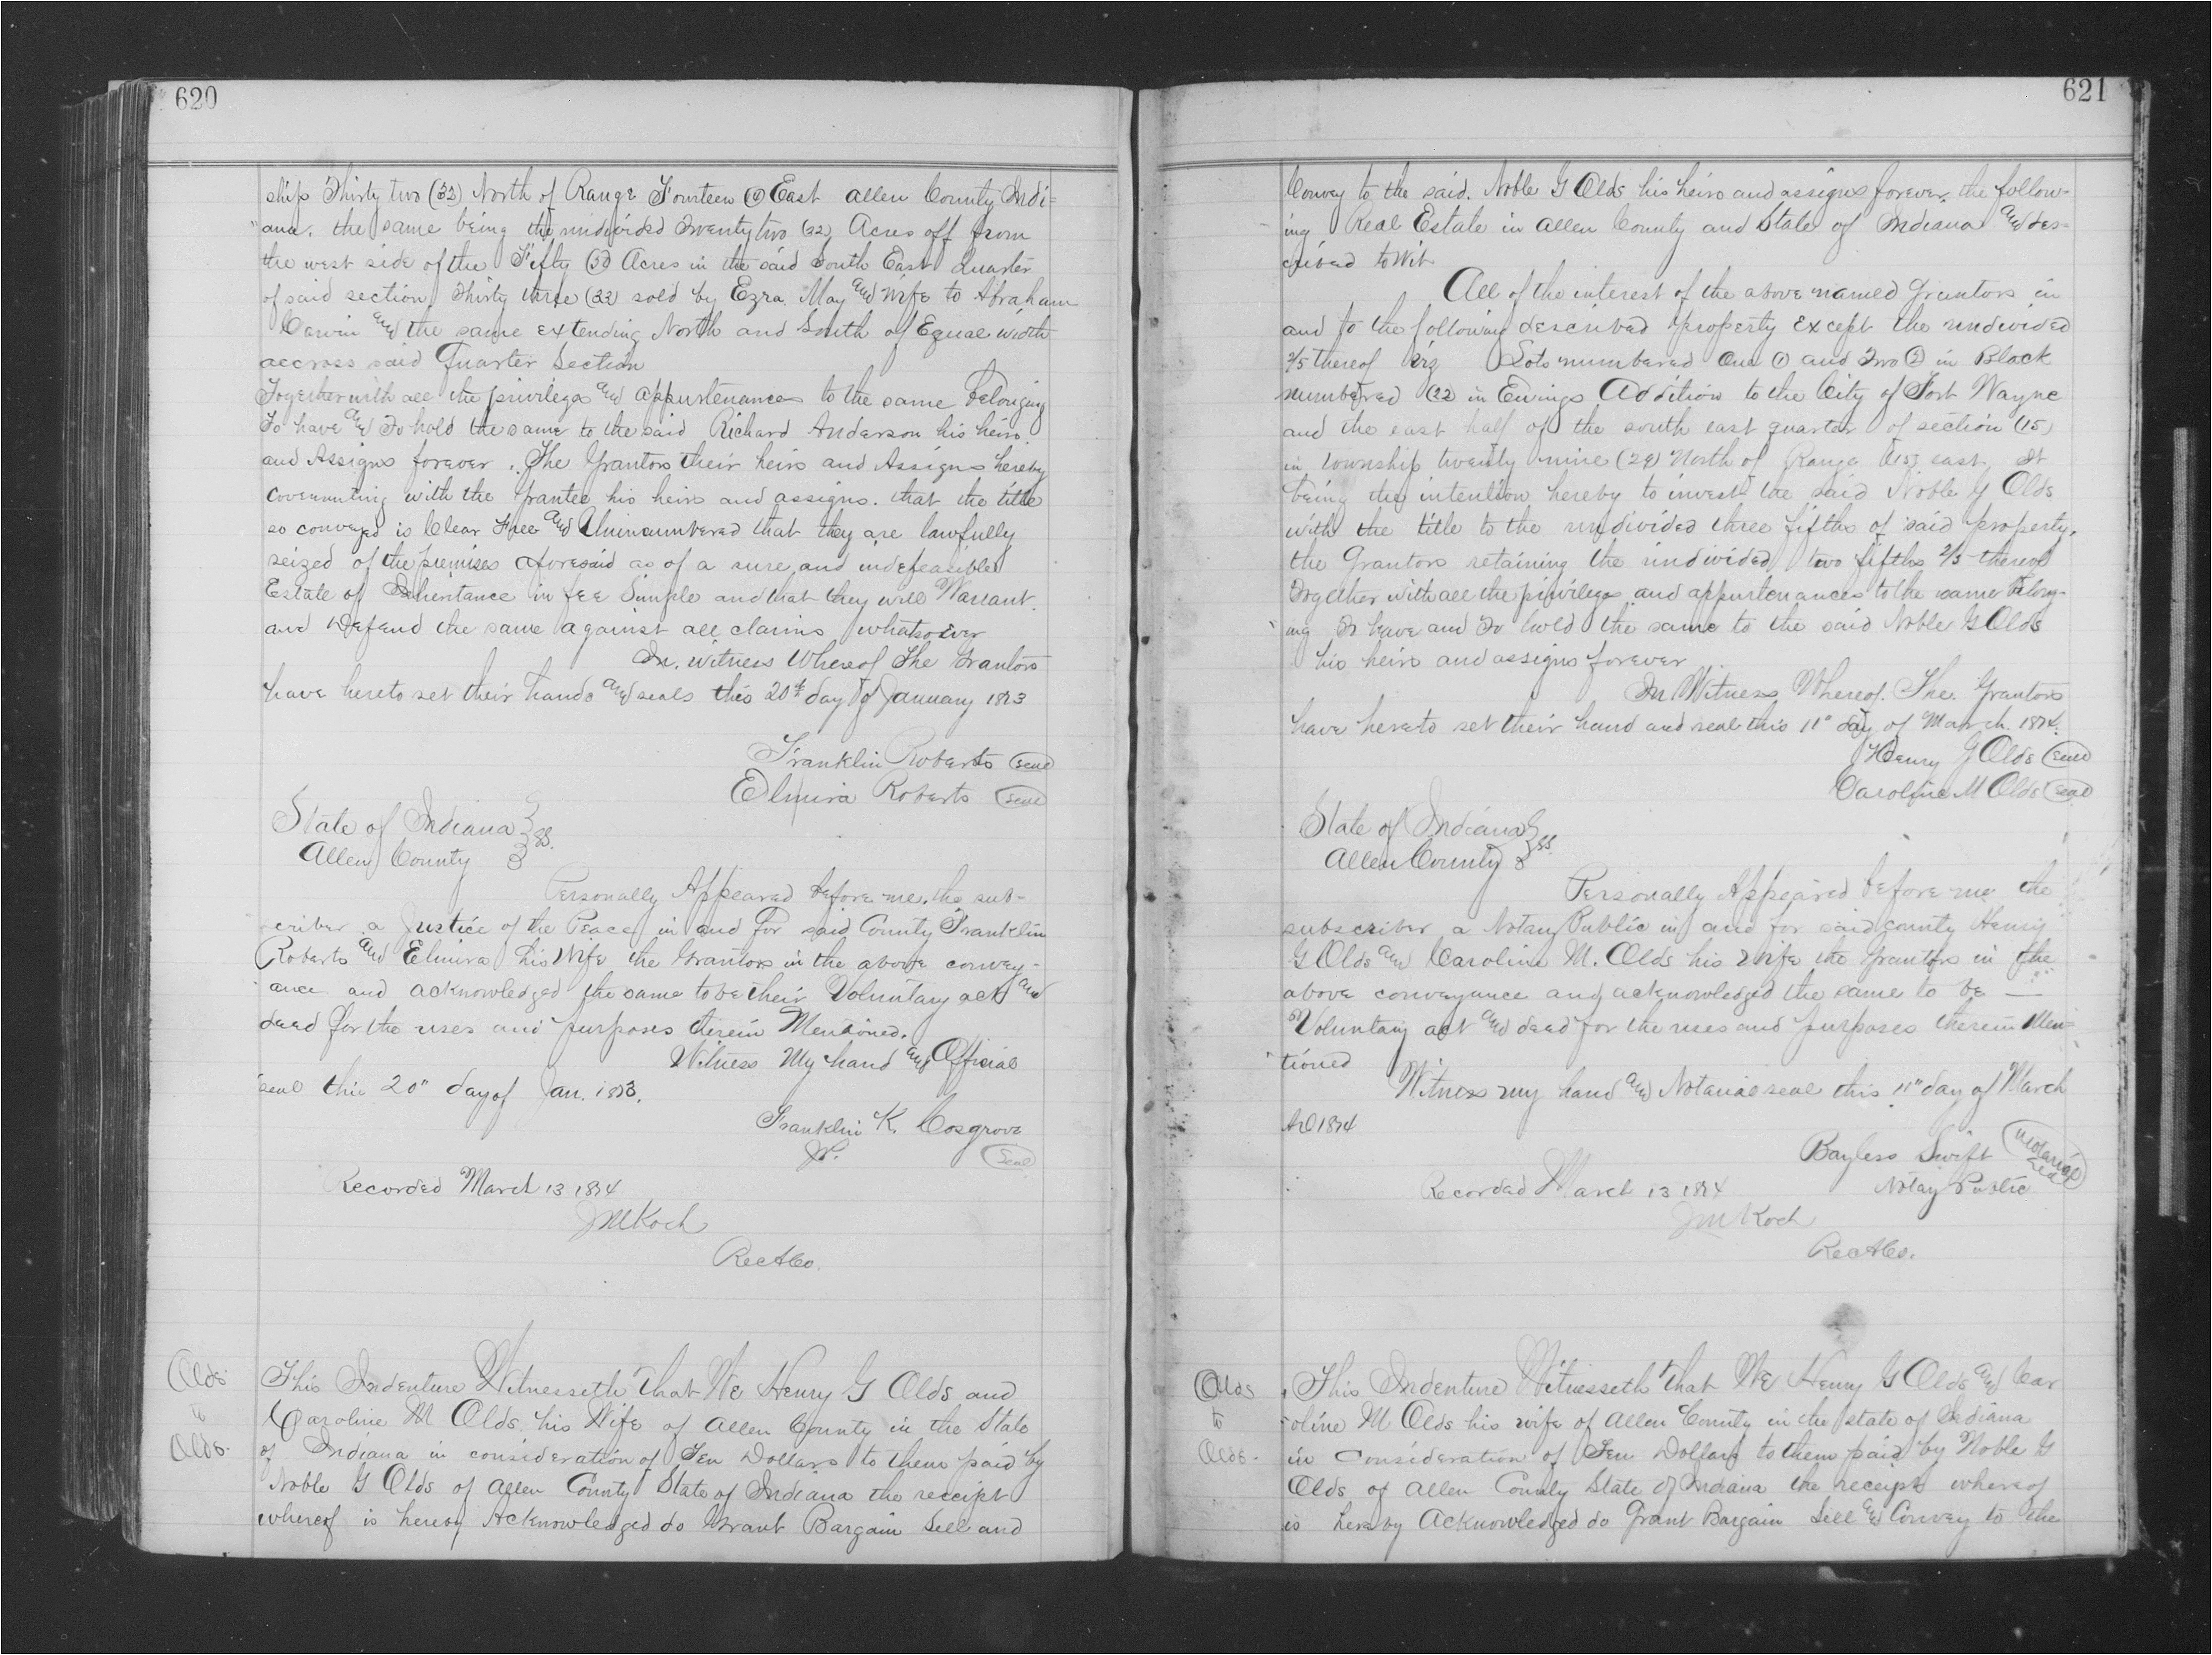 620
ship Thirty two (32) North of Range Fourteen East Allen County Indi=
ana. the same being the undivided Twenty two (22) Acres off from
the west side of the Fifty (50) Acres in the said South East Quarter
of said section Thirty three (33) sold by Ezra May and wife to Abraham
and the same extending North and South of Equal width
accross said Quarter Section
Together with all the privileges and appurtenances to the same belonging
To have and To hold the same to the said Richard Anderson his heirs
and Assigns forever. The Grantors their heirs and Assigns hereby
covenanting with the Grantee his heirs and assigns. that the title
so conveyed is Clear Free and Unincumbered that they are lawfully
seized of the premises aforesaid as of a sure and indefeasible
Estate of Inheritance in fee Simple and that they will Warrant
and Defend the same against all claims whatsoever
In witness Whereof The Grantors
have hereto set their hands and seals this 20th day of January 1873
Franklin Roberts (Seal)
Elmira Roberts (Seal)
State of Indiana } SS.
Allen County }
Personally Appeared before me, the sub-
scriber a Justice of the Peace in and For said County Franklin
Roberts and Elmira his Wife the Grantors in the above convey-
ance and acknowledged the same to be their Voluntary act and
deed for the uses and purposes therein Mentioned.
Witness My hand and Official
seal this 20" day of Jan. 1873.
Franklin K. Cosgrove
JP. (Seal)
Recorded March 13 1874
JM Koch
RecACo.
Olds
to
Olds.
This Indenture Witnesseth That We Henry G Olds and
Caroline M Olds his Wife of Allen County in the State
of Indiana in consideration of Ten Dollars to them paid by
Noble G Olds of Allen County State of Indiana the receipt
whereof is hereby Acknowledged do Grant Bargain Sell and
621
Convey to the said. Noble G Olds his heirs and assigns forever, the follow-
ing Real Estate in Allen County and State of Indiana and des-
cribed to Wit
All of the interest of the above named Grantors in
and to the following described property Except the undivided
2/5 thereof viz Lots numbered One (1) and Two (2) in Block
numbered (22) in Ewings Addition to the City of Fort Wayne
and the east half of the south east quarter of section (15)
in township twenty nine (29) North of Range (15) east It
being the intention hereby to invest the said Noble G Olds
with the title to the undivided three fifths of said property.
the Grantors retaining the undivided two fifths 2/5 thereof
Together with all the privileges and appurtenances to the same belong-
ing To have and To hold the same to the said Noble G Olds
his heirs and assigns forever
In Witness Whereof. The Grantors
have hereto set their hand and seal this 11" day of March 1874.
Henry G Olds (Seal)
Caroline M Olds (Seal)
State of Indiana } SS.
Allen County }
Personally Appeared before me the
subscriber a Notary Public in and for said county Henry
G Olds and Caroline M. Olds his Wife the Grantors in the
above conveyance and acknowledged the same to be —
Voluntary act and deed for the uses and purposes therein Men=
tioned
Witness my hand and Notarial seal this 11" day of March
AD 1874
Bayless Swift (Notarial Seal)
Notary Public
Recorded March 13 1874
JM Koch
RecACo.
Olds
to
Olds.
This Indenture Witnesseth That We Henry G Olds and Car
oline M Olds his wife of Allen County in the state of Indiana
in Consideration of Ten Dollars to them paid by Noble G
Olds of Allen County State of Indiana the receipt whereof
is hereby Acknowledged do Grant Bargain Sell and Convey to the